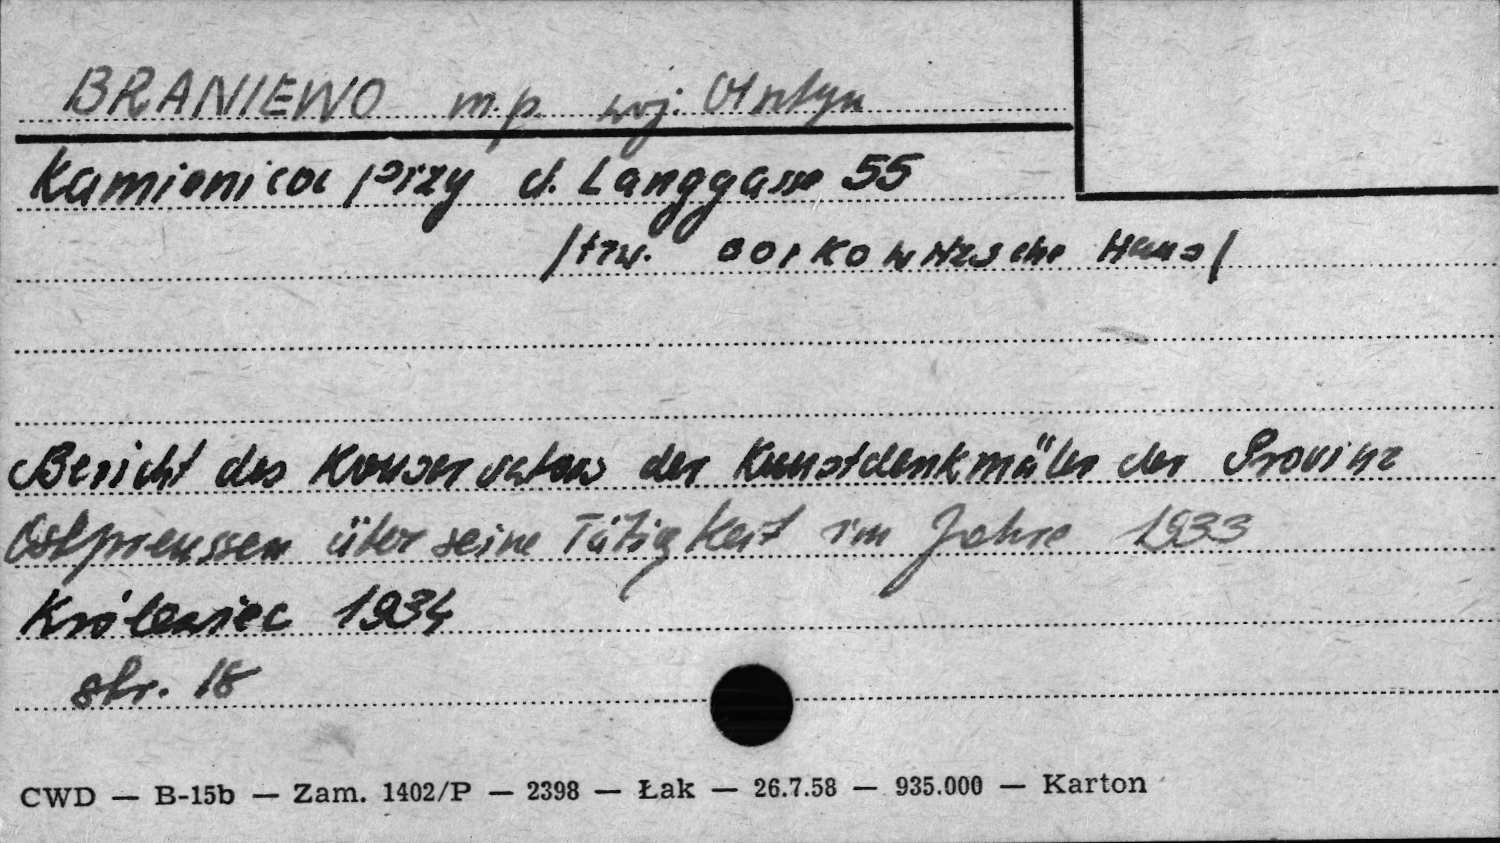 BRANIEWO m.p. woj. Olsztyn
Kamienica przy ul. Langgasse 55
/tzw. Borkowitzsche Haus/
Bericht des Konservators der Kunstdenkmäler der Provinz
Ostpreussen über seine Tätigkeit im Jahre 1933
Królewiec 1934
str. 18
CWD — B-15b — Zam. 1402/P — 2398 — Łak — 26.7.58 — 935.000 — Karton